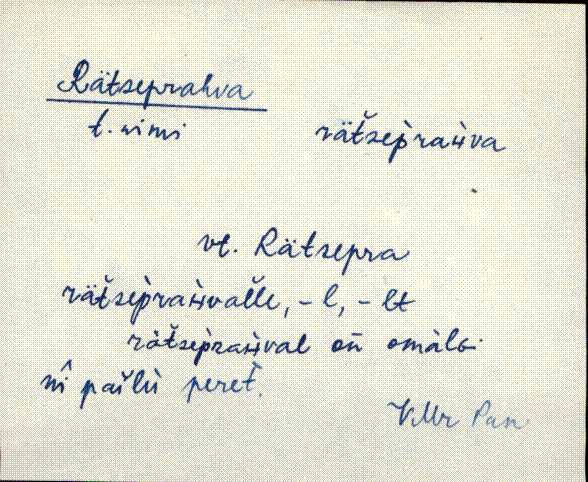 Rätseprahva
t. nimi rätsèpraḣva
vt. Rätsepra
rätsèpraḣvalle, -l, -lt
rätsèpraḣval on omàlɢ
nî pal̆lù peret̆.
V.Mr Pun